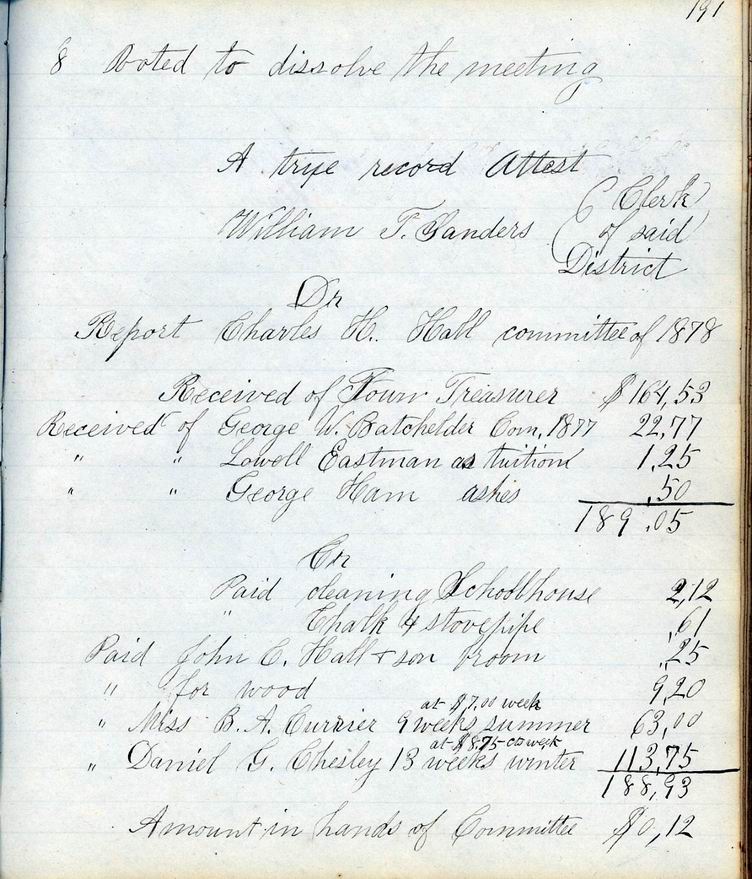 191
8 Voted to dissolve the meeting
A true record Attest
William T. Sanders ( Clerk
of said
District
Dr
Report Charles H. Hall committee of 1878
Received of Town Treasurer $164,53
Received of George W. Batchelder Com. 1877 22,77
" " Lowell Eastman as tuition 1,25
" " George Ham ashes ,50
189.05
Cr
Paid cleaning Schoolhouse 2,12
" Chalk & stovepipe ,61
Paid John C. Hall & son broom ,25
" for wood 9,20
at $7.00 week
" Miss B. A. Currier 9 weeks summer 63,00
at $8.75 week
" Daniel G. Chesley 13 weeks winter 113,75
188,93
Amount in hands of Committee $0,12